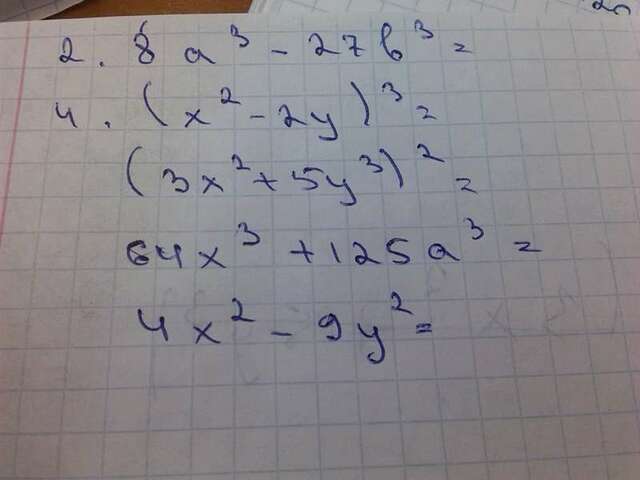 2. 8a³ - 27b³ =
4. (x² - 2y)³ =
(3x² + 5y³)² =
64x³ + 125a³ =
4x² - 9y² =